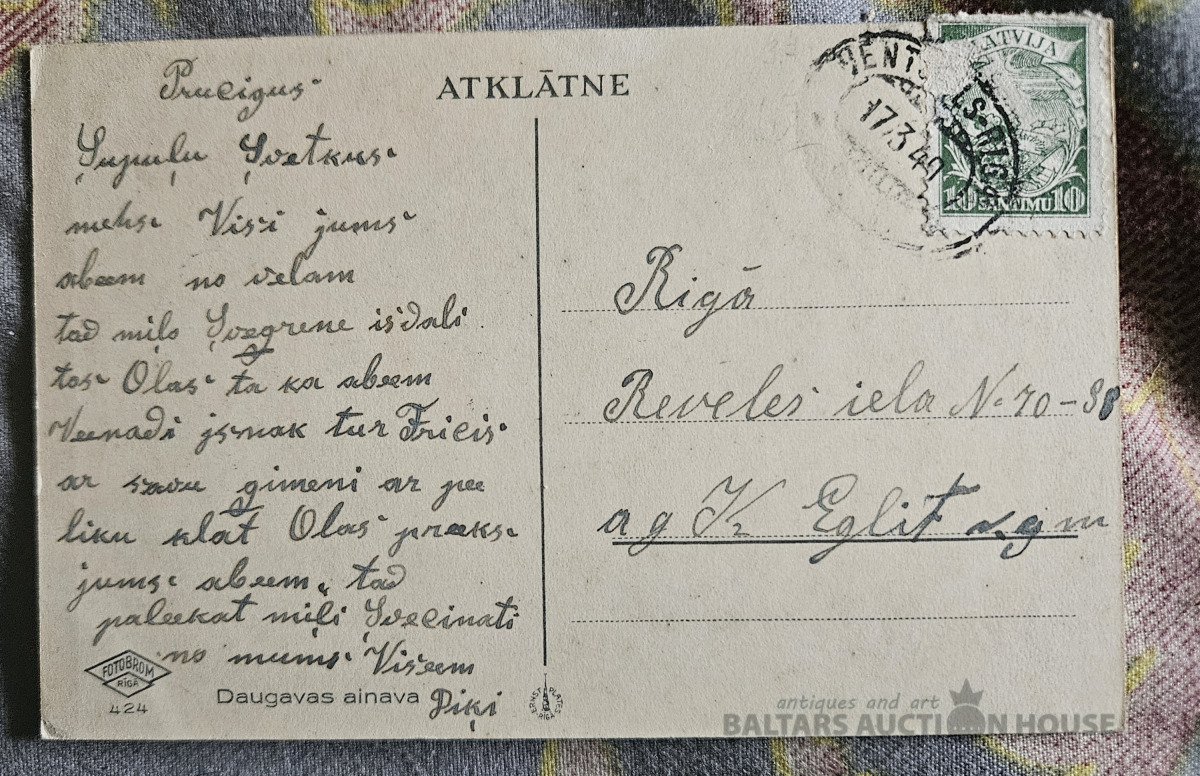 ATKLĀTNE
Prucigus
Șupuļu Șvetkus
mehs Visi jums
abeem no velam
tad miļo Șvegrene isdali
tos Olas ta ka abeem
Veenadi jsnak tur Fricis
ar savu gimeni ar pee
liku klat Olas preeks
jums abeem, tad
paleekat miļi Șvecinati
no mums Viseem
Piķi
FOTOBROM
RĪGĀ
424
Daugavas ainava
ERNST PLATES RĪGĀ
LATVIJA
10 SANTIMU 10
17.3.40
Rigā
Reveles iela N. 70-38
a g K Eglit k.g m
antiques and art
BALTARS AUCTION HOUSE